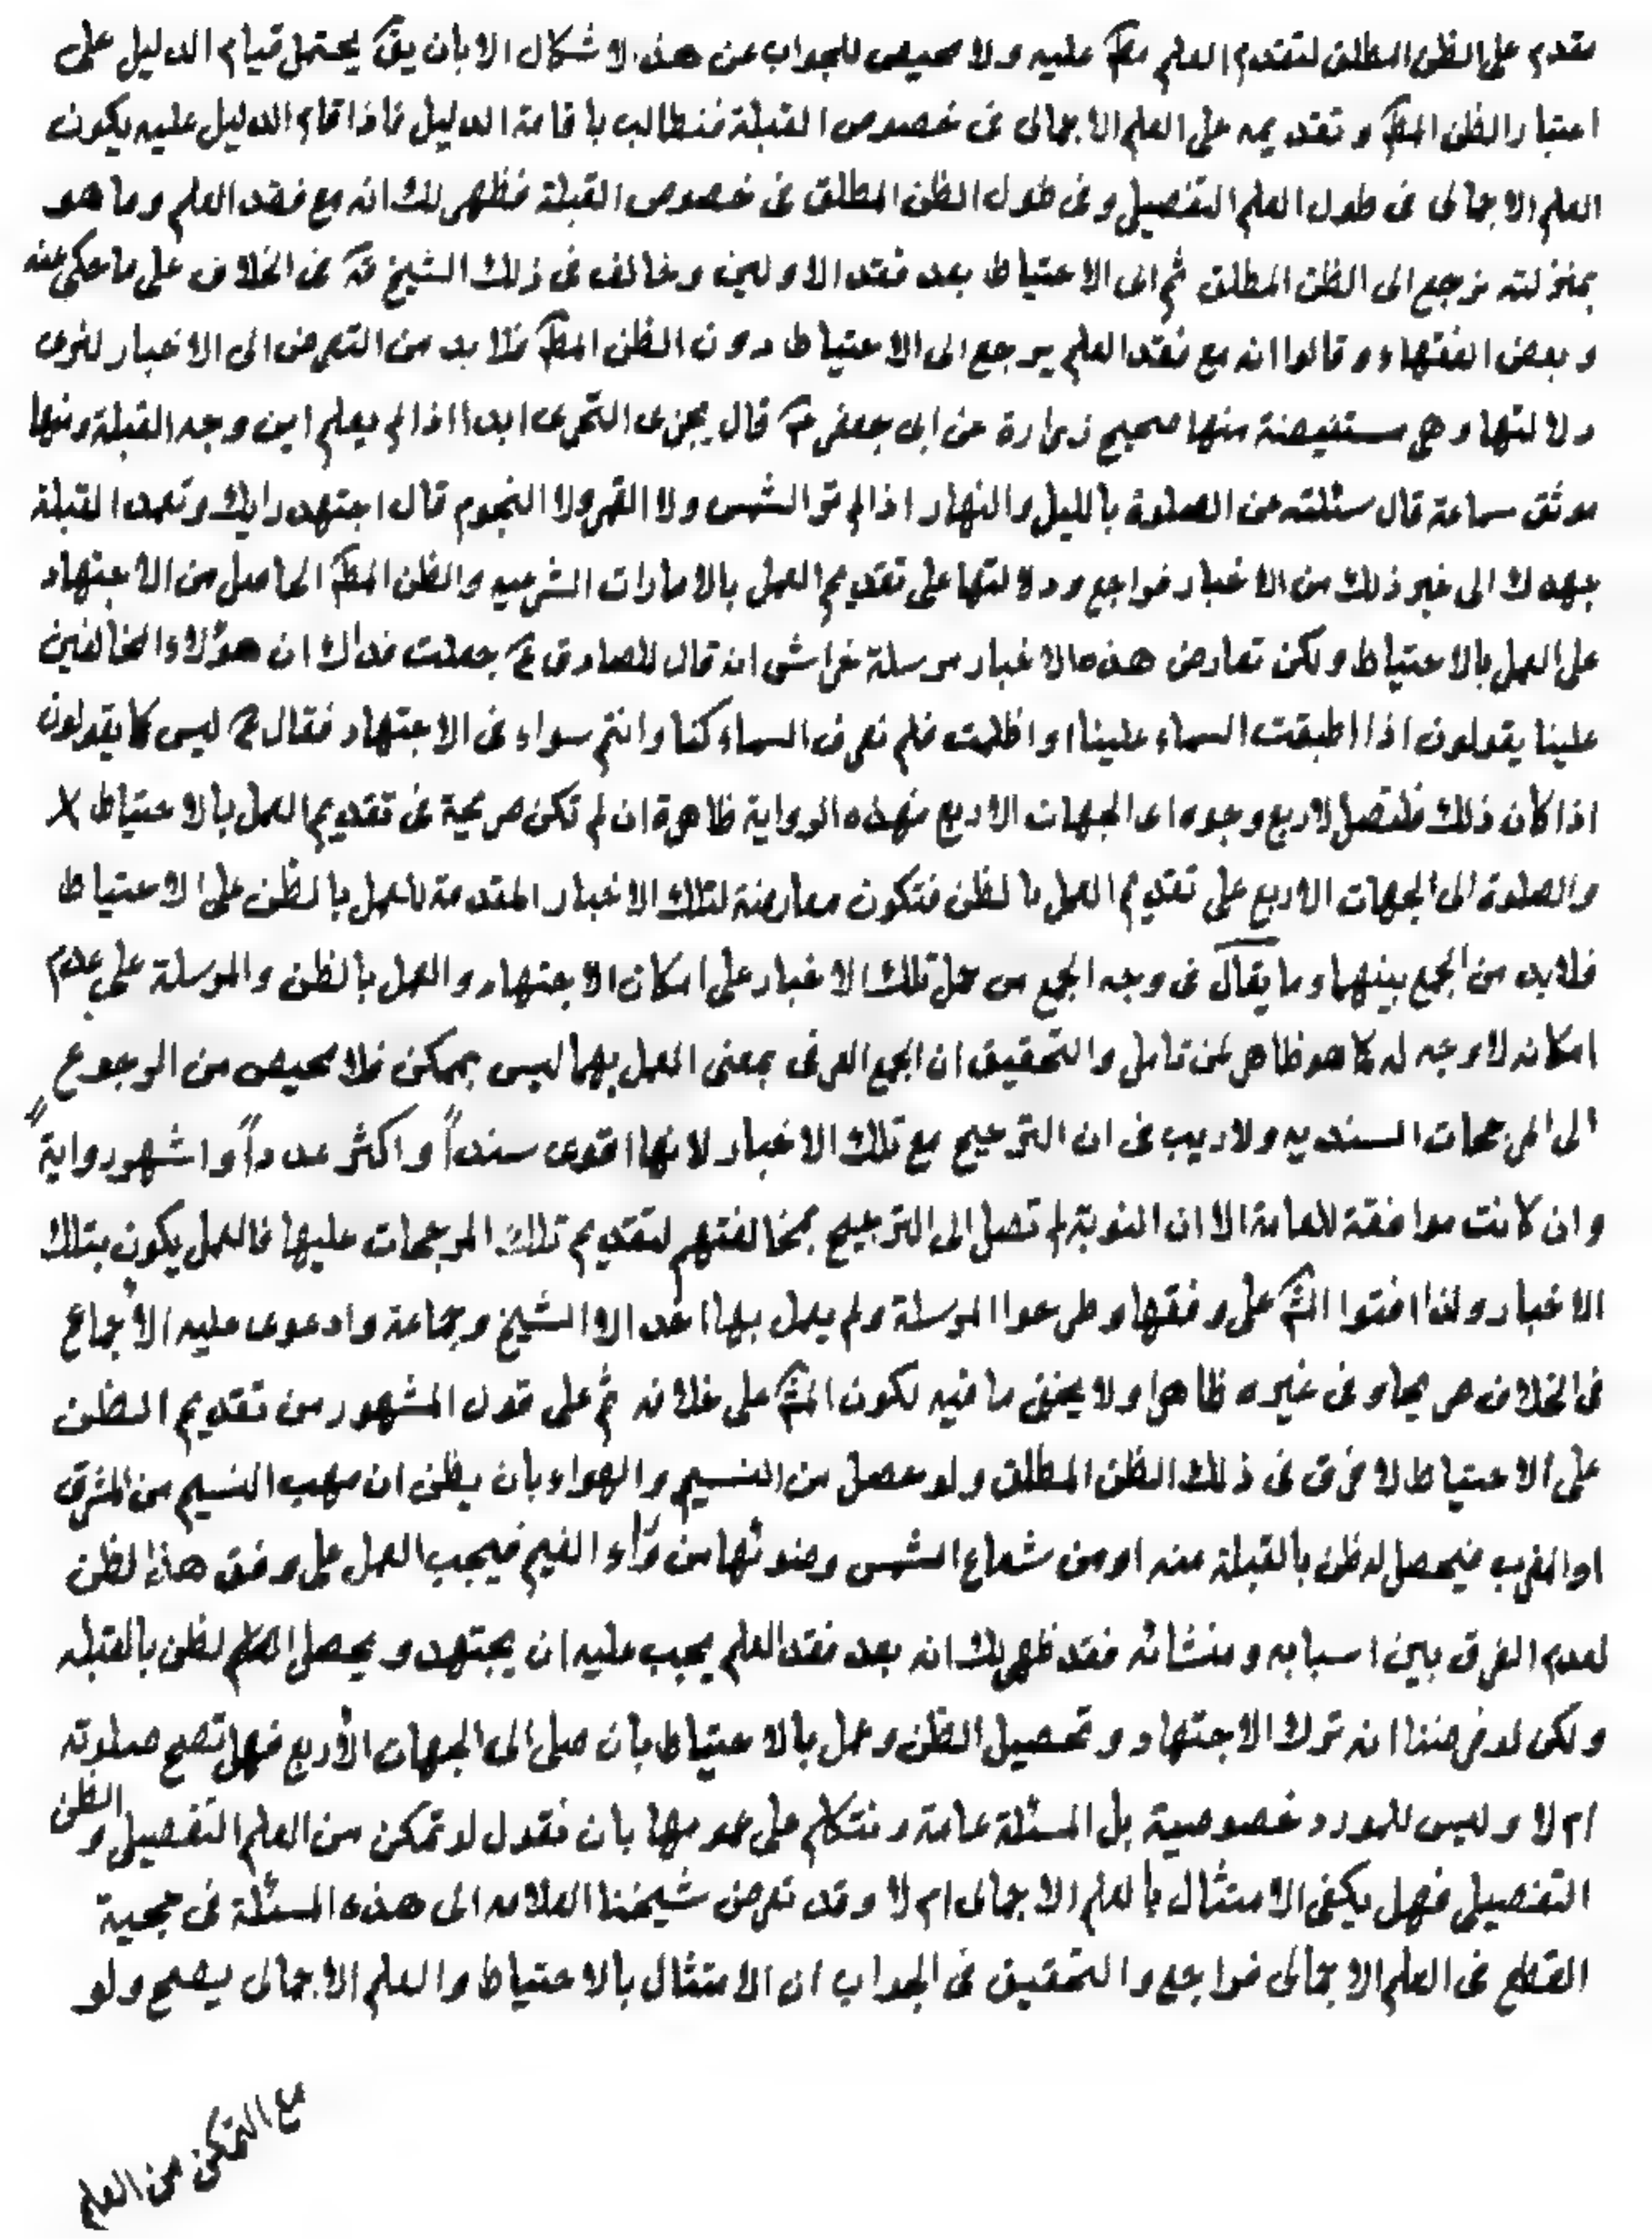 مقدم على الظن المطلق لتقدم العلم مط عليه ولا محيص للجواب عن هذه الاشكال الا بان يق يحتمل قيام الدليل على
اعتبار الظن المط وتقديمه على العلم الاجمالى فى خصوص القبلة فنطالب باقامة الدليل فاذا قام الدليل عليه يكون
العلم الاجمالى فى طول العلم التفصيلى وفى طول الظن المطلق فى خصوص القبلة فظهر لك انه مع فقد العلم وما هو
بمنزلته نرجع الى الظن المطلق ثم الى الاحتياط بعد فقد الاولين وخالف فى ذلك الشيخ قه فى الخلاف على ما حكى عنه
وبعض الفقهاء وقالوا انه مع فقد العلم يرجع الى الاحتياط دون الظن المط فلا بد من التعرض الى الاخبار لنرى
دلالتها وهى مستفيضة منها صحيح زرارة عن ابى جعفر ع قال يجزى التحرى ابدا اذا لم يعلم اين وجه القبلة ومنها
موثق سماعة قال سئلته عن الصلوة بالليل والنهار اذا لم تر الشمس ولا القمر ولا النجوم قال اجتهد رايك وتعمد القبلة
جهدك الى غير ذلك من الاخبار فراجع ودلالتها على تقديم العمل بالامارات الشرعيه والظن المط الحاصل من الاجتهاد
على العمل بالاحتياط ولكن تعارض هذه الاخبار مرسلة خراش انه قال للصادق ع جعلت فداك ان هؤلاء المخالفين
علينا يقولون اذا اطبقت السماء علينا او اظلمت فلم نعرف السماء كنا وانتم سواء فى الاجتهاد فقال ع ليس كما يقولون
اذا كان ذلك فلتصل لاربع وجوه اى الجهات الاربع فهذه الرواية ظاهرة ان لم تكن صريحة فى تقديم العمل بالاحتياط X
والصلوة الى الجهات الاربع على تقديم العمل بالظن فتكون معارضة لتلك الاخبار المقدمة للعمل بالظن على الاحتياط
فلا بد من الجمع بينهما وما يقال فى وجه الجمع من حمل تلك الاخبار على امكان الاجتهاد والعمل بالظن والمرسلة على عدم
امكانه لا وجه له كما هو ظاهر لمن تامل والتحقيق ان الجمع العرفى بمعنى العمل بهما ليس بممكن فلا محيص من الرجوع
الى المرجحات السنديه ولا ريب فى ان الترجيح مع تلك الاخبار لانها اقوى سنداً واكثر عدداً واشهر رواية
وان كانت موافقة للعامة الا ان النوبة لم تصل الى الترجيح بمخالفتهم لتقديم تلك المرجحات عليها فالعمل يكون بتلك
الاخبار ولذا افتوا المش على وفقها وطرحوا المرسلة ولم يعمل بها احد الا الشيخ وجماعة وادعوى عليه الاجماع
فى الخلاف صريحا وفى غيره ظاهرا ولا يخفى ما فيه لكون المش على خلافه ثم على قول المشهور من تقديم الظن
على الاحتياط لا فرق فى ذلك الظن المطلق ولو حصل من النسيم والهواء بان يظن ان مهب النسيم من المشرق
او المغرب فيحصل له ظن بالقبلة منه او من شعاع الشمس وضوئها من وراء الغيم فيجب العمل على وفق هذا الظن
لعدم الفرق بين اسبابه ومنشائه فقد ظهر لك انه بعد فقد العلم يجب عليه ان يجتهد ويحصل الظن بالقبله
ولكن لو فرضنا انه ترك الاجتهاد وتحصيل الظن وعمل بالاحتياط بان صلى الى الجهات الأربع فهل تصح صلوته
ام لا وليس للمورد خصوصية بل المسئلة عامة ونتكلم على عمومها بان نقول لو تمكن من العلم التفصيلى والظن
التفصيلى فهل يكفى الامتثال بالعلم الاجمالى ام لا وقد تعرض شيخنا العلامه الى هذه المسئلة فى حجية
القطع فى العلم الاجمالى فراجع والتحقيق فى الجواب ان الامتثال بالاحتياط والعلم الاجمالى يصح ولو
مع التمكن من العلم